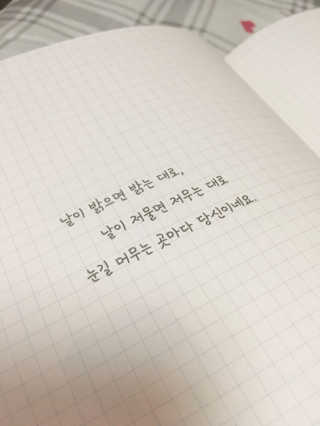 날이 밝으면 밝는 대로,
날이 저물면 저무는 대로
눈길 머무는 곳마다 당신이네요.